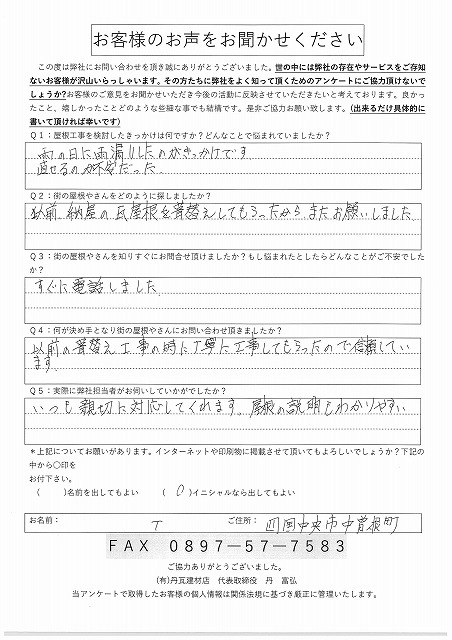 お客様のお声をお聞かせください
この度は弊社にお問い合わせを頂き誠にありがとうございました。世の中には弊社の存在やサービスをご存知
ないお客様が沢山いらっしゃいます。その方たちに弊社をよく知って頂くためのアンケートにご協力頂けないで
しょうか?お客様のご意見をお聞かせいただき今後の活動に反映させていただきたいと考えております。良かっ
たこと、嬉しかったことどのような些細な事でも結構です。是非ご協力お願い致します。(出来るだけ具体的に
書いて頂ければ幸いです)
Q1：屋根工事を検討したきっかけは何ですか？どんなことで悩まれていましたか？
雨の日に雨漏りしたのがきっかけです
直せるのか不安だった
Q2：街の屋根やさんをどのように探しましたか？
以前、納屋の瓦屋根を葺替えしてもらったから、またお願いしました。
Q3：街の屋根やさんを知りすぐにお問合せ頂けましたか？もし悩まれたとしたらどんなことがご不安でした
か？
すぐに電話しました。
Q4：何が決め手となり街の屋根やさんにお問い合わせ頂きましたか？
以前の葺替え工事の時に丁寧に工事してもらったので信頼してい
ます。
Q5：実際に弊社担当者がお伺いしていかがでしたか？
いつも親切に対応してくれます。屋根の説明もわかりやすい
＊上記についてお願いがあります。インターネットや印刷物に掲載させて頂いてもよろしいでしょうか？下記の
中から〇印を
お付下さい。
（　　）名前を出してもよい　　（　〇）イニシャルなら出してもよい
お名前：　T　ご住所：　四国中央市中曽根町
FAX 0897-57-7583
ご協力ありがとうございました。
(有)丹瓦建材店　代表取締役　丹　富弘
当アンケートで取得したお客様の個人情報は関係法規に基づき厳正に管理いたします。